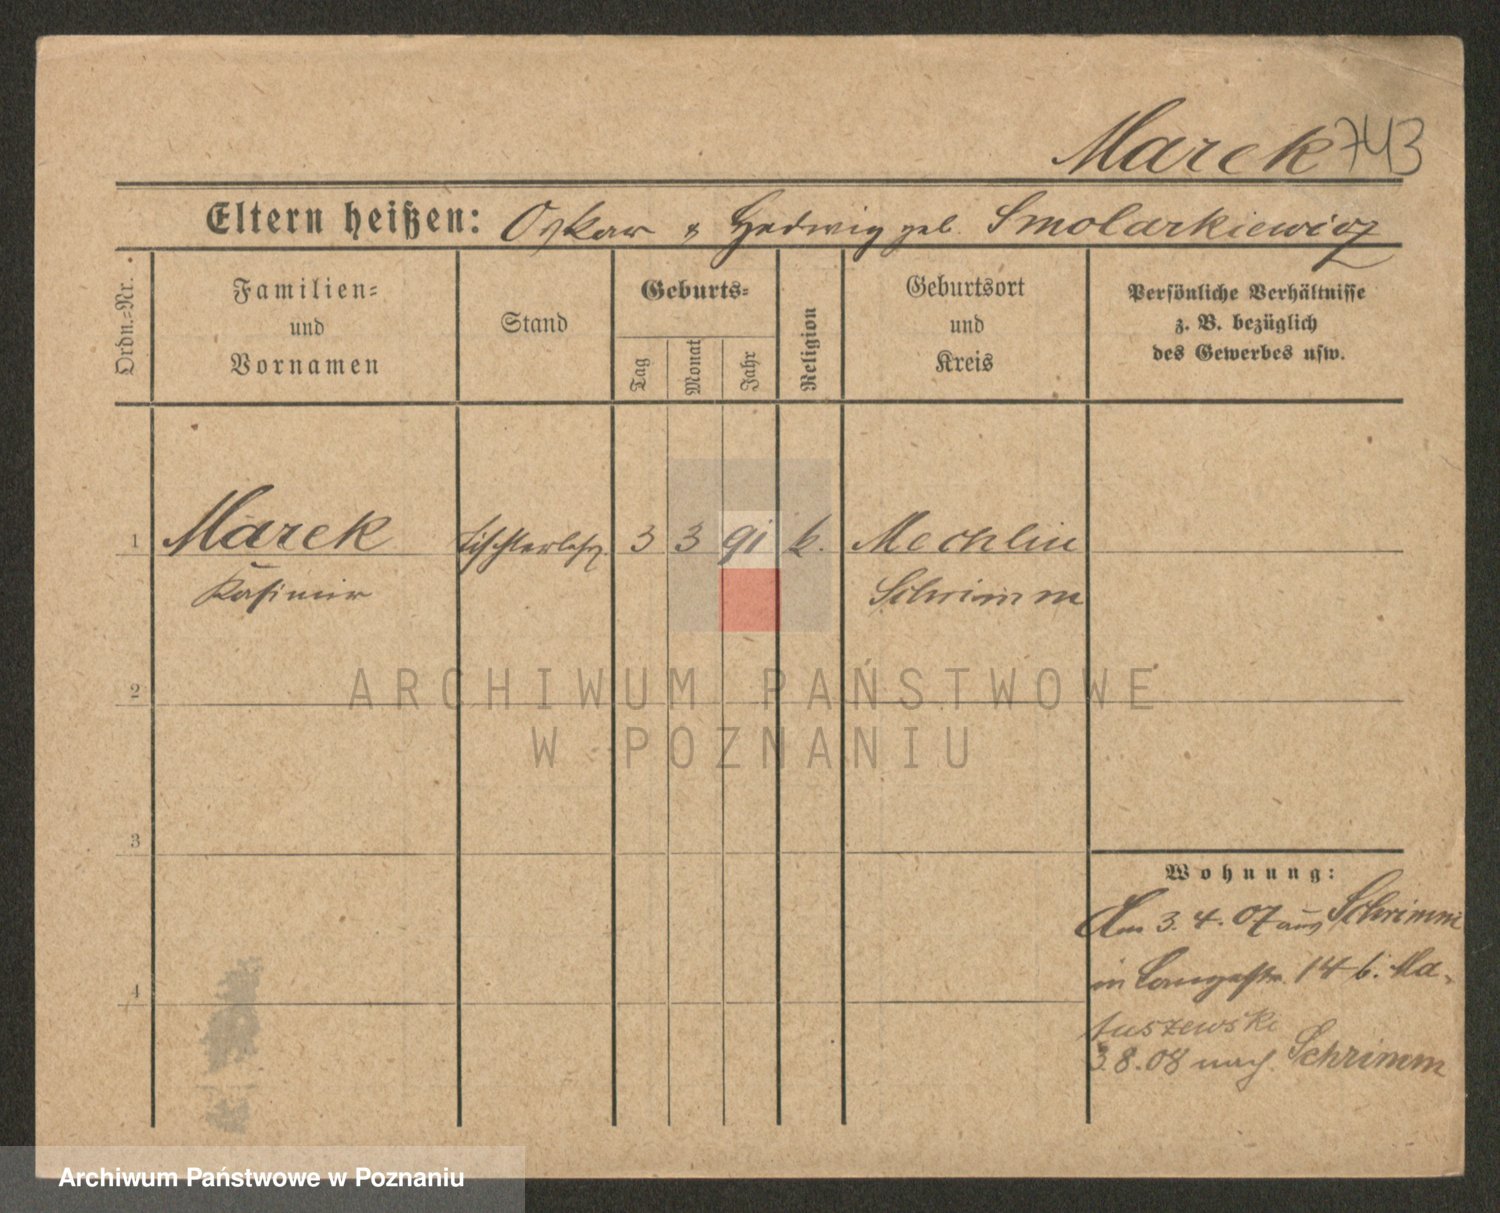 Marek 743
Eltern heißen: Oskar & Hedwig geb. Smolarkiewicz
Ordn.=Nr.
Familien=
und
Vornamen
Stand
Geburts=
Tag
Monat
Jahr
Religion
Geburtsort
und
Kreis
Persönliche Verhältnisse
z. B. bezüglich
des Gewerbes usw.
1 Marek Tischlerlehrl. 3 3 91 k. Mechlin
Kasimir Schrimm
ARCHIWUM PAŃSTWOWE
W POZNANIU
2
3
4
Wohnung:
Am 3. 4. 07 aus Schrimm
in Langestr. 14 b. Ma-
tuszewski
3.8.08 nach Schrimm
Archiwum Państwowe w Poznaniu